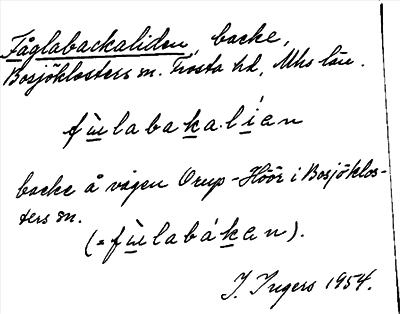 Fåglabackaliden, backe,
Bosjöklosters sn. Frosta hd, Mhs län.
fùlabakalían
backe å vägen Orup-Höör i Bosjöklos-
ters sn.
(=fùlabákan).
I. Ingers 1954.